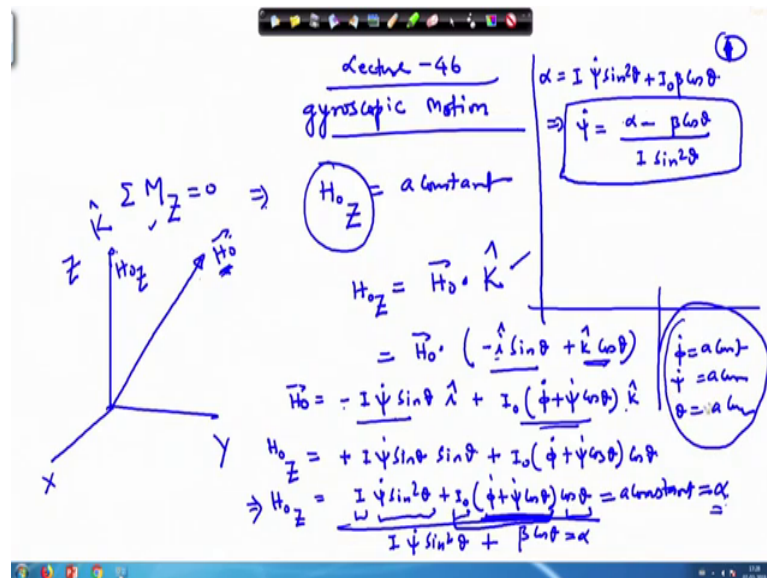 Lecture - 46
gyroscopic Motion
①
α = I ψ̇ sin²θ + I₀ β cosθ
⇒ ψ̇ = (α − β cosθ) / (I sin²θ)
K̂ Σ M_Z = 0 ⇒ H₀_Z = a constant
Z H₀_Z H⃗₀
X Y
H₀_Z = H⃗₀ · K̂
= H⃗₀ · (−î sinθ + k̂ cosθ)
H⃗₀ = − I ψ̇ sinθ î + I₀ (φ̇ + ψ̇ cosθ) k̂
H₀_Z = + I ψ̇ sinθ sinθ + I₀ (φ̇ + ψ̇ cosθ) cosθ
⇒ H₀_Z = I ψ̇ sin²θ + I₀ (φ̇ + ψ̇ cosθ) cosθ = a constant = α
I ψ̇ sin²θ + β cosθ = α
φ̇ = a con
ψ̇ = a con
θ = a con